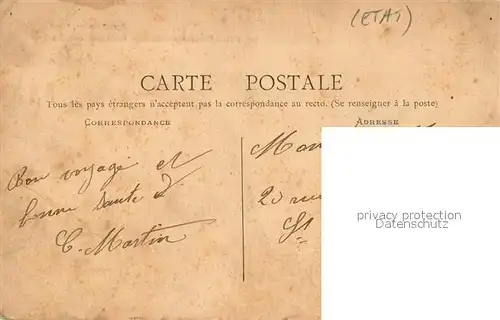 (ETAT)
CARTE POSTALE
Tous les pays étrangers n'acceptent pas la correspondance au recto. (Se renseigner à la poste)
CORRESPONDANCE
ADRESSE
Bon voyage et
bonne santé
C. Martin
20 rue
St
privacy protection
Datenschutz